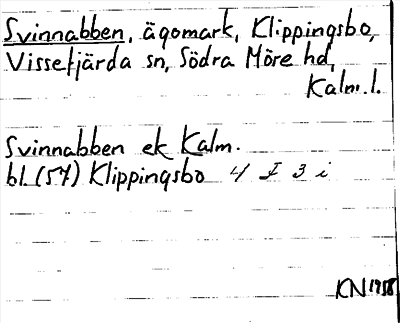 Svinnabben, ägomark, Klippingsbo,
Vissefjärda sn, Södra Möre hd,
Kalm. l.
Svinnabben ek Kalm.
bl. (54) Klippingsbo 4 I 3 i
KN 1958